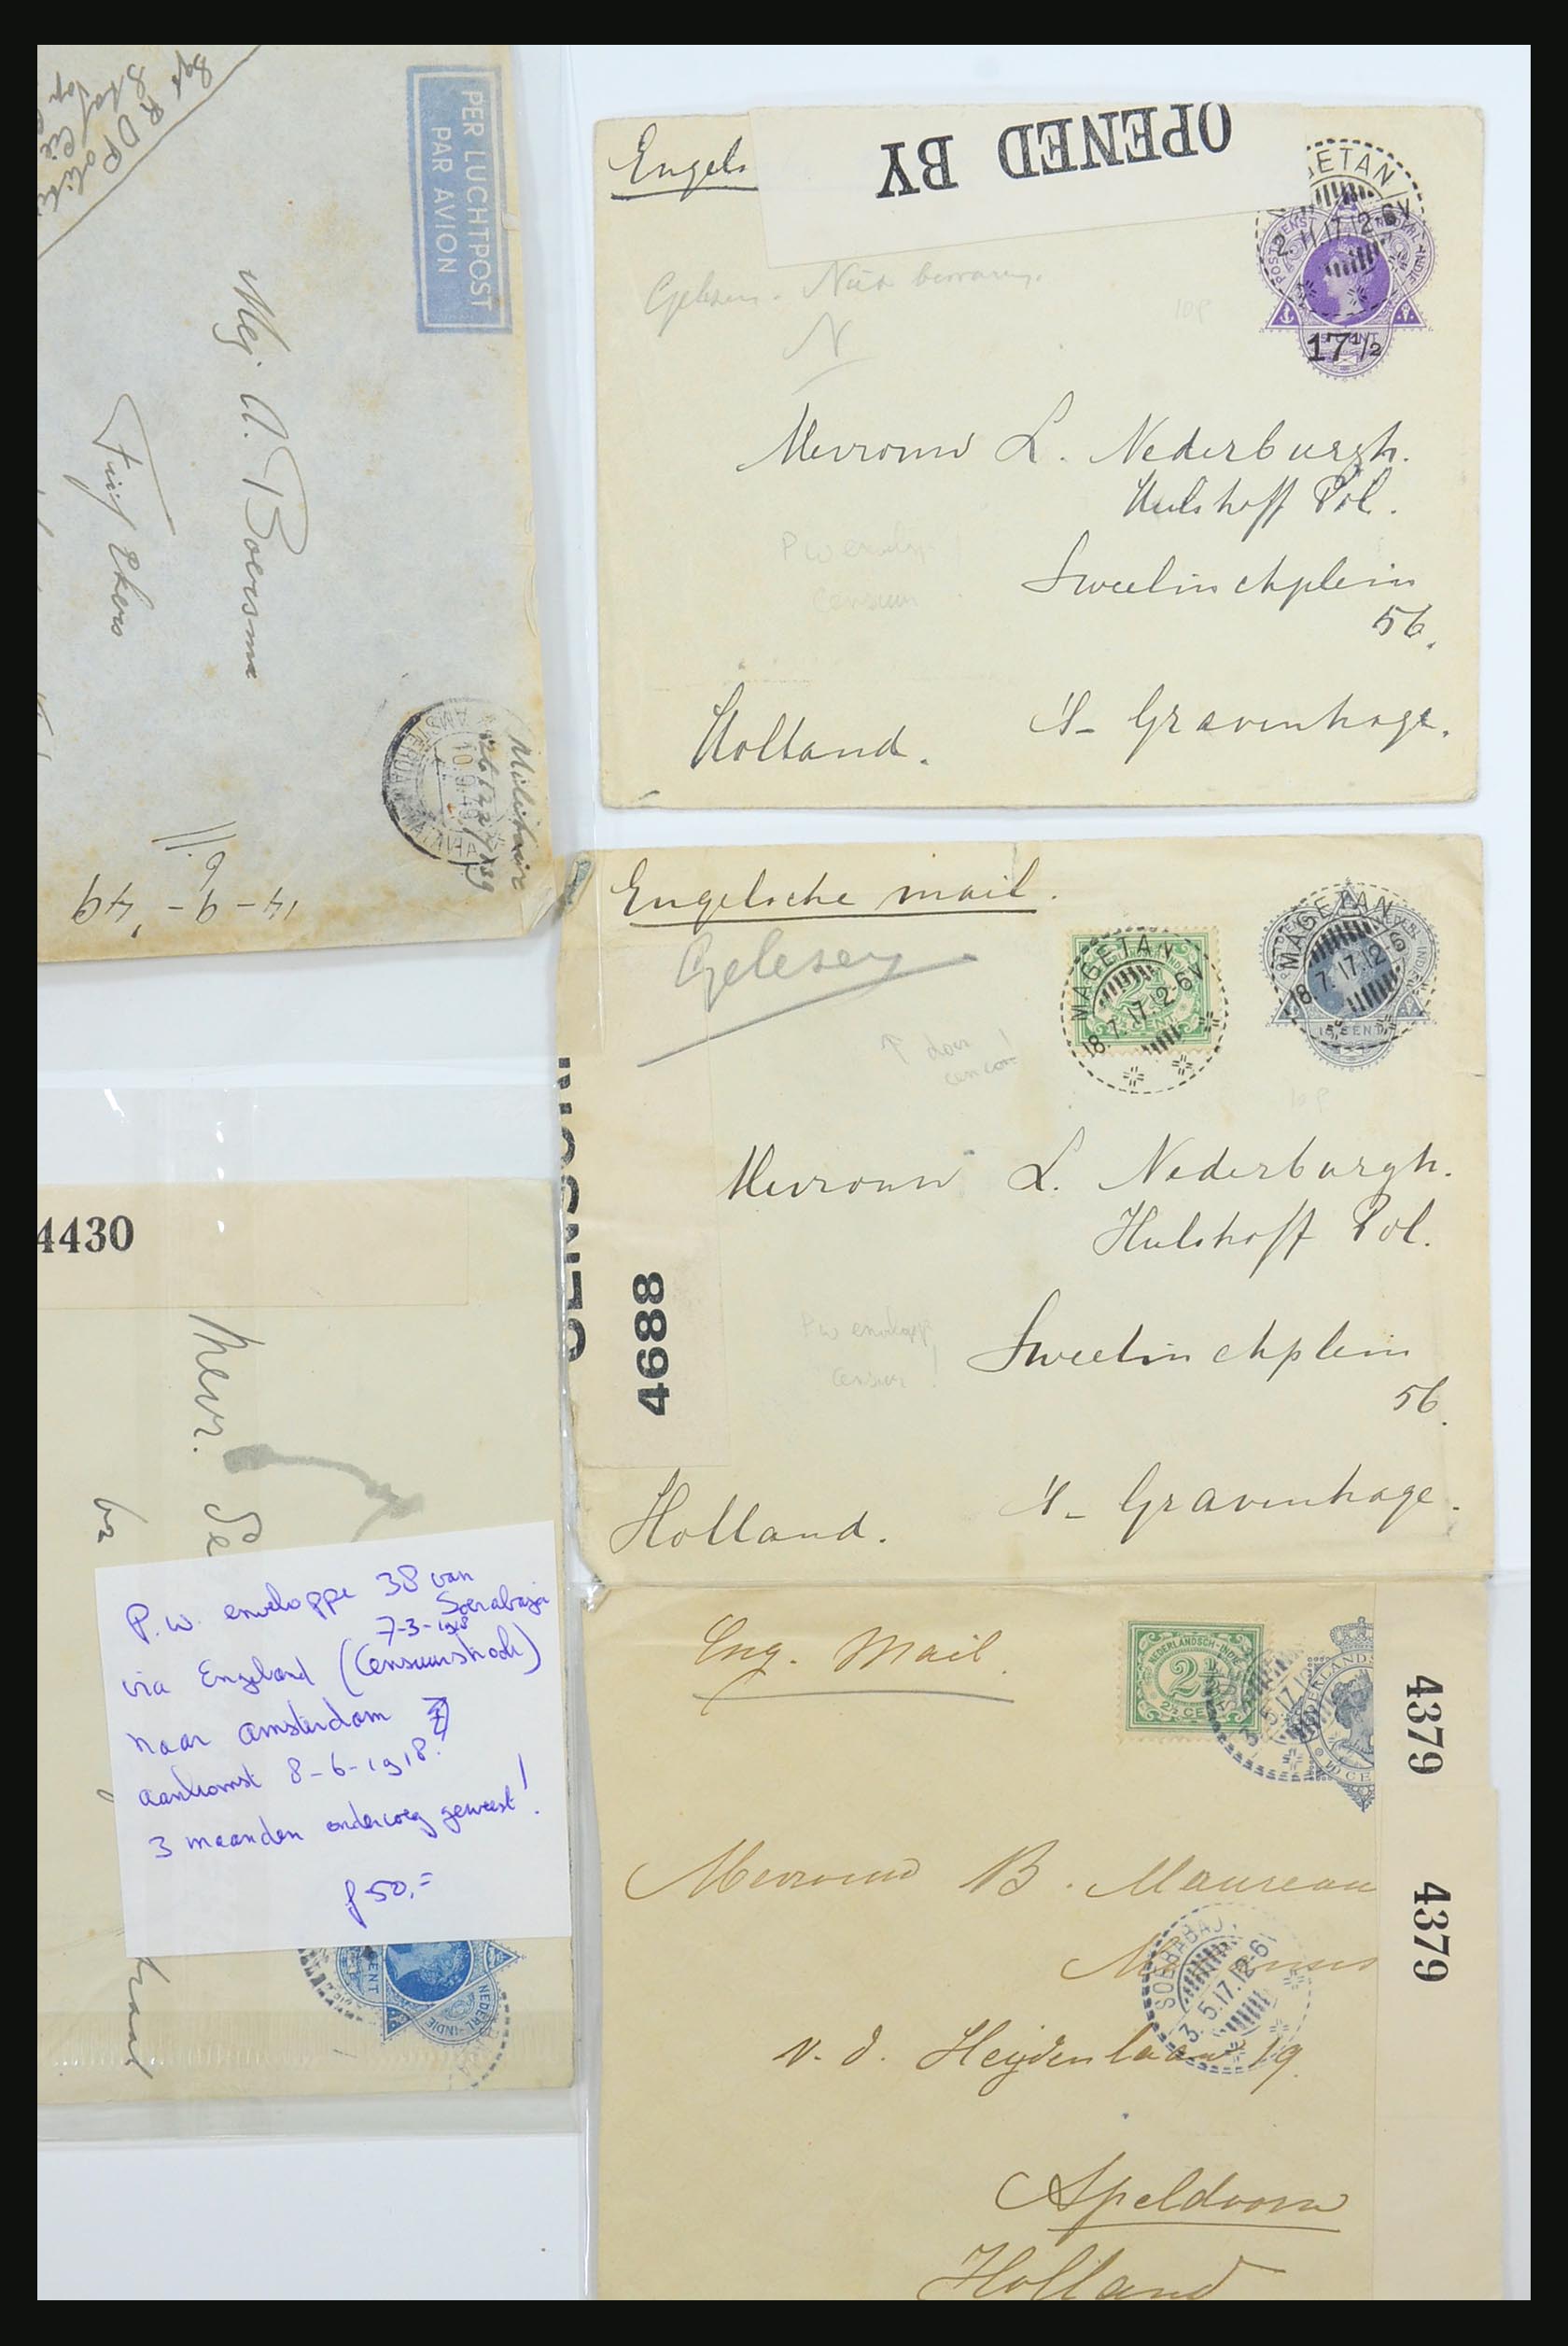 PER LUCHTPOST
PAR AVION
Mej. A. Boersma
Militaire
10.9.49
14-9-'49
OPENED BY
Engels
GETAN
2.11.17.12-6V
POSTDIENST
17½
Gelezen. Niet bewaren.
N
10p
Mevrouw L. Nederburgh.
Hulshoff Pol.
P w envelop
censuur
Sweelinckplein
56.
's-Gravenhage.
Holland.
Engelsche mail.
Gelezen
MAGETAN
18.7.17.12-6V
MAGETAN
18.7.17.12-6
15 CENT
↑ door
censor!
10p
CENSOR
4688
Mevrouw L. Nederburgh.
Hulshoff Pol.
P w enveloppe
censuur!
Sweelinckplein
56.
's-Gravenhage.
Holland.
4430
Mevr. de
P.w. enveloppe 38 van
Soerabaja
7-3-1918
via Engeland (Censuurstrook)
naar Amsterdam
aankomst 8-6-1918.
3 maanden onderweg geweest!
f 50,=
CENT
NEDERL-INDIE
straat
Eng. Mail.
NEDERLANDSCH-INDIË
2½
2½ CENT
NEDERLANDS
10 CE
4379
4379
Mevrouw B. Maureau
SOERABAJA
3.5.17.12-6
v. d. Heydenlaan 19.
Apeldoorn
Holland